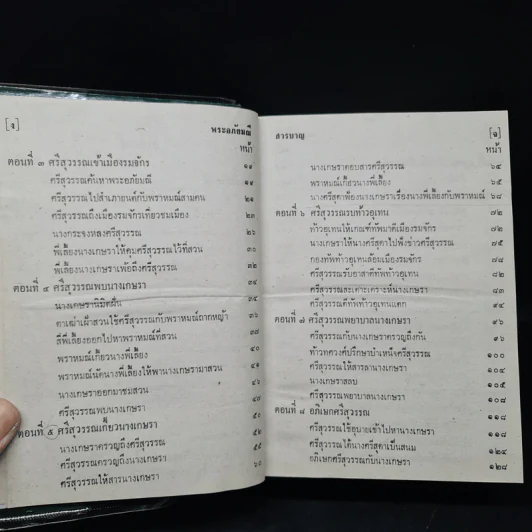 [ง]
พระอภัยมณี
หน้า
ตอนที่ ๓ ศรีสุวรรณเข้าเมืองรมจักร ๑๙
ศรีสุวรรณค้นหาพระอภัยมณี ๑๙
ศรีสุวรรณไปสำเภายนต์กับพราหมณ์สามคน ๒๑
ศรีสุวรรณถึงเมืองรมจักรเที่ยวชมเมือง ๒๓
นางกระจงหลงศรีสุวรรณ ๒๖
พี่เลี้ยงนางเกษราให้คุมศรีสุวรรณไว้ที่สวน ๓๐
พี่เลี้ยงนางเกษราเพ้อถึงศรีสุวรรณ ๓๒
ตอนที่ ๔ ศรีสุวรรณพบนางเกษรา ๓๔
นางเกษรานิมิตฝัน ๓๔
ตาเฒ่าเฝ้าสวนใช้ศรีสุวรรณกับพราหมณ์ถากหญ้า ๓๖
สี่พี่เลี้ยงออกไปหาพราหมณ์ที่สวน ๓๗
พราหมณ์เกี้ยวนางพี่เลี้ยง ๔๐
พราหมณ์นัดนางพี่เลี้ยงให้พานางเกษรามาสวน
นางเกษราออกมาชมสวน
ศรีสุวรรณพบนางเกษรา
ตอนที่ ๕ ศรีสุวรรณเกี้ยวนางเกษรา
นางเกษราครวญถึงศรีสุวรรณ
ศรีสุวรรณครวญถึงนางเกษรา
ศรีสุวรรณให้สารนางเกษรา ๖๐
สารบาญ
หน้า
นางเกษราตอบสารศรีสุวรรณ ๖๕
พราหมณ์เกี้ยวนางพี่เลี้ยง
นางศรีสุดาฟ้องนางเกษราเรื่องนางพี่เลี้ยงกับพราหมณ์
ตอนที่ ๖ ศรีสุวรรณรบท้าวอุเทน
ท้าวอุเทนให้เกณฑ์ทัพมาตีเมืองรมจักร
นางเกษราให้นางศรีสุดาไปฟังข่าวศรีสุวรรณ
กองทัพท้าวอุเทนล้อมเมืองรมจักร
ศรีสุวรรณรับอาสาตีทัพท้าวอุเทน
ศรีสุวรรณสะเดาะเคราะห์นางเกษรา
ศรีสุวรรณตีทัพท้าวอุเทนแตก
ตอนที่ ๗ ศรีสุวรรณพยาบาลนางเกษรา
ศรีสุวรรณกับนางเกษราครวญถึงกัน
ท้าวทศวงศ์ปรึกษาบำเหน็จศรีสุวรรณ ๑๐๐
ศรีสุวรรณให้สารลานางเกษรา ๑๐๔
นางเกษราสลบ ๑๐๕
ศรีสุวรรณพยาบาลนางเกษรา
ตอนที่ ๘ อภิเษกศรีสุวรรณ ๑๑๘
ศรีสุวรรณใช้อุบายเข้าไปหานางเกษรา ๑๑๘
ศรีสุวรรณได้นางศรีสุดาเป็นสนม ๑๒๔
อภิเษกศรีสุวรรณกับนางเกษรา